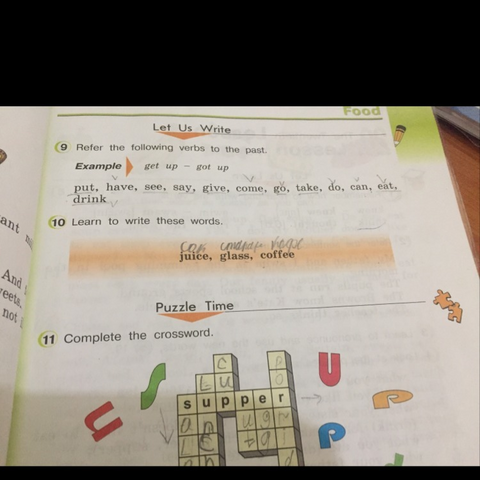 Food
Let Us Write
9 Refer the following verbs to the past.
Example get up – got up
put, have, see, say, give, come, go, take, do, can, eat,
drink
10 Learn to write these words.
juice, glass, coffee
Puzzle Time
11 Complete the crossword.
supper
ant
And
veets.
not